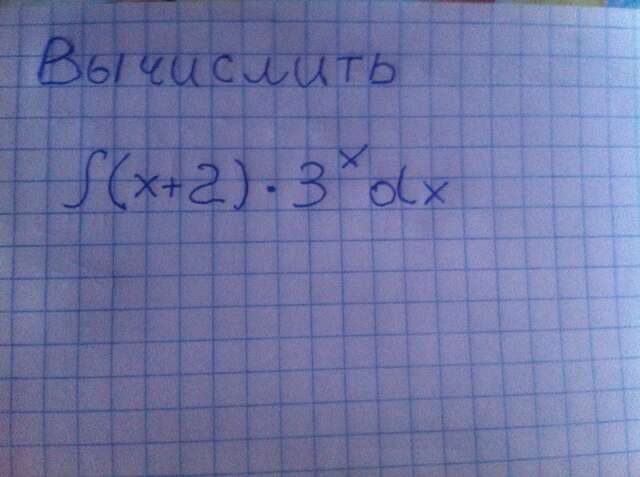 Вычислить
∫(x+2)·3ˣdx